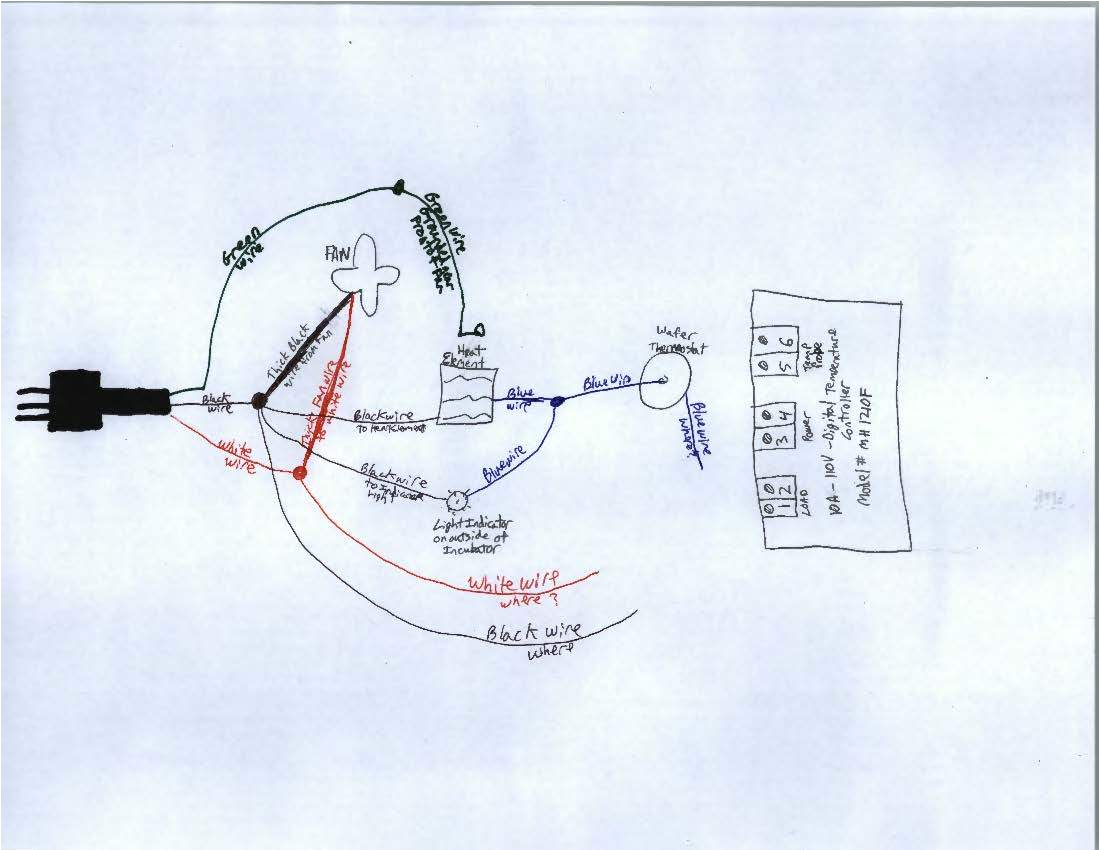 Green
wire
FAN
Green wire
Thick Black
wire from Fan
Wafer
Thermostat
Heat
Element
Black
wire
Blue
wire
Blue wire
Blue wire
where?
Black wire
to Heat Element
to White wire
White
wire
Black wire
to Indicator
Light
Blue wire
Light Indicator
on outside of
Incubator
White wire
where?
Black wire
where
6
5
Temp
Probe
4
3
Power
2
1
LOAD
10A-110V-Digital Temperature
Controller
Model # MH1210F